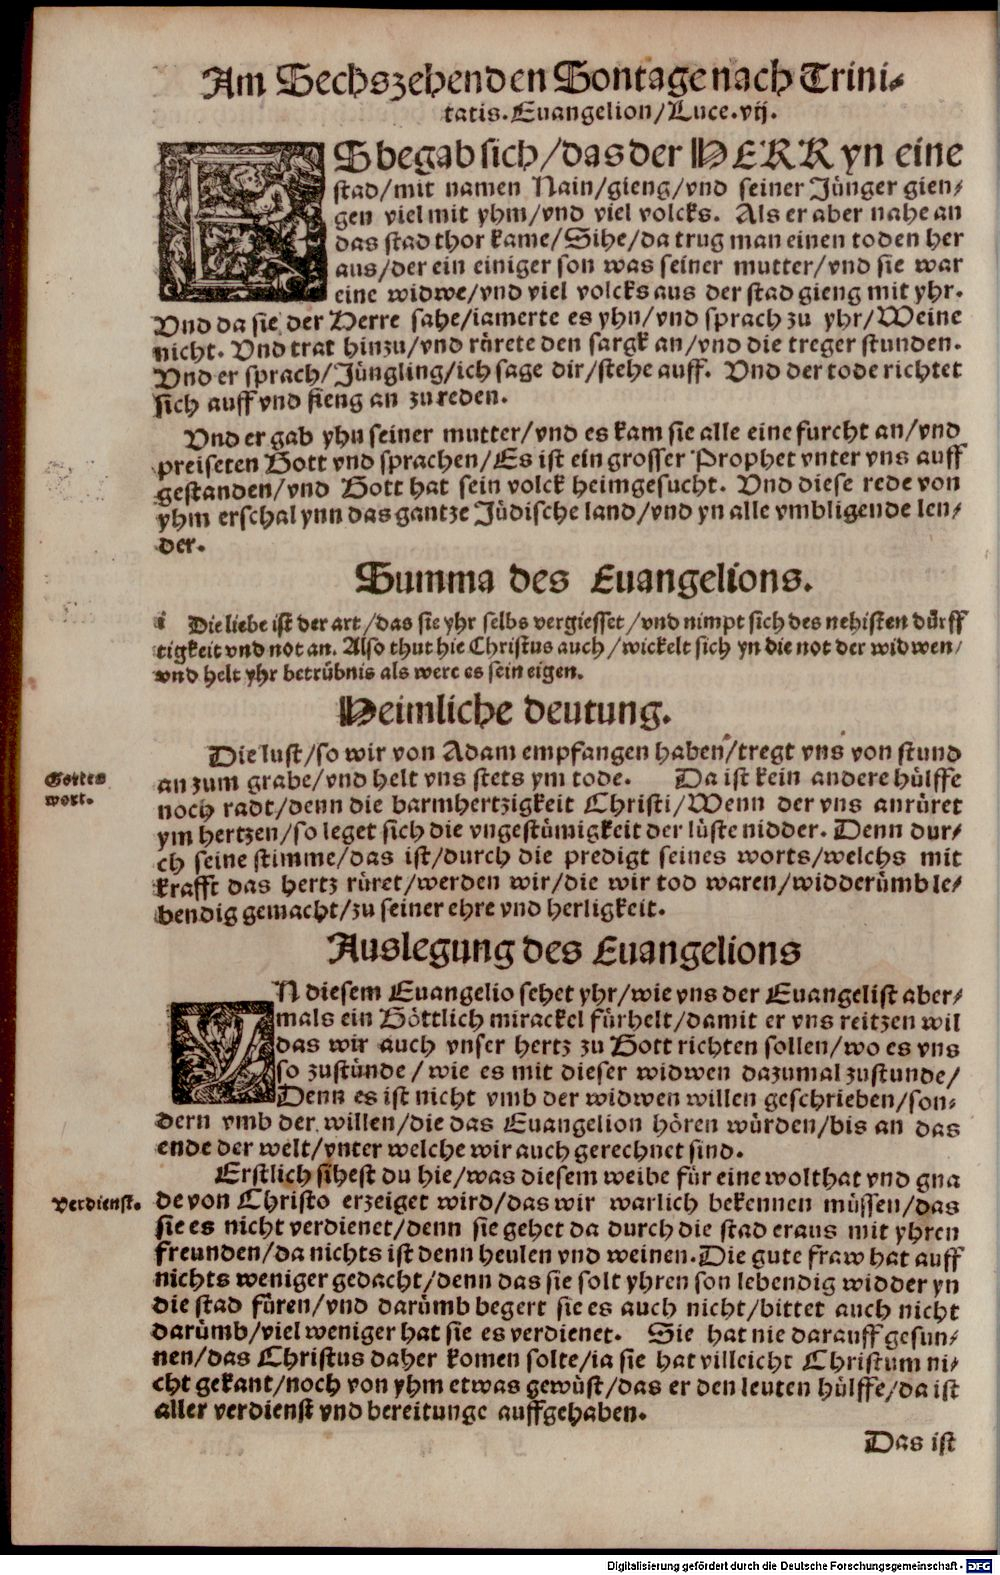 Am Sechszehenden Sontage nach Trini⸗
tatis. Euangelion/Luce. vij.
ES begab sich/das der HERR yn eine
stad/mit namen Nain/gieng/vnd seiner Jünger gien⸗
gen viel mit yhm/vnd viel volcks. Als er aber nahe an
das stad thor kame/Sihe/da trug man einen toden her
aus/der ein einiger son was seiner mutter/vnd sie war
eine widwe/vnd viel volcks aus der stad gieng mit yhr.
Vnd da sie der Herre sahe/iamerte es yhn/vnd sprach zu yhr/Weine
nicht. Vnd trat hinzu/vnd rürete den sargk an/vnd die treger stunden.
Vnd er sprach/Jüngling/ich sage dir/stehe auff. Vnd der tode richtet
sich auff vnd fieng an zu reden.
Vnd er gab yhn seiner mutter/vnd es kam sie alle eine furcht an/vnd
preiseten Gott vnd sprachen/Es ist ein grosser Prophet vnter vns auff
gestanden/vnd Gott hat sein volck heimgesucht. Vnd diese rede von
yhm erschal ynn das gantze Jüdische land/vnd yn alle vmbligende len⸗
der.
Summa des Euangelions.
Die liebe ist der art/das sie yhr selbs vergiesset/vnd nimpt sich des nehisten dürff
tigkeit vnd not an. Also thut hie Christus auch/wickelt sich yn die not der widwen/
vnd helt yhr betrübnis als were es sein eigen.
Heimliche deutung.
Die lust/so wir von Adam empfangen haben/tregt vns von stund
Gottes
wort.
an zum grabe/vnd helt vns stets ym tode. Da ist kein andere hülffe
noch radt/denn die barmhertzigkeit Christi/Wenn der vns anrüret
ym hertzen/so leget sich die vngestümigkeit der lüste nidder. Denn dur⸗
ch seine stimme/das ist/durch die predigt seines worts/welchs mit
krafft das hertz rüret/werden wir/die wir tod waren/widderümb le⸗
bendig gemacht/zu seiner ehre vnd herligkeit.
Auslegung des Euangelions
YN diesem Euangelio sehet yhr/wie vns der Euangelist aber⸗
mals ein Göttlich mirackel fürhelt/damit er vns reitzen wil
das wir auch vnser hertz zu Gott richten sollen/wo es vns
so zustünde/wie es mit dieser widwen dazumal zustunde/
Denn es ist nicht vmb der widwen willen geschrieben/son⸗
dern vmb der willen/die das Euangelion hören würden/bis an das
ende der welt/vnter welche wir auch gerechnet sind.
Erstlich sihest du hie/was diesem weibe für eine wolthat vnd gna
Verdienst.
de von Christo erzeiget wird/das wir warlich bekennen müssen/das
sie es nicht verdienet/denn sie gehet da durch die stad eraus mit yhren
freunden/da nichts ist denn heulen vnd weinen. Die gute fraw hat auff
nichts weniger gedacht/denn das sie solt yhren son lebendig widder yn
die stad füren/vnd darümb begert sie es auch nicht/bittet auch nicht
darümb/viel weniger hat sie es verdienet. Sie hat nie darauff gesun⸗
nen/das Christus daher komen solte/ia sie hat villeicht Christum ni⸗
cht gekant/noch von yhm etwas gewüst/das er den leuten hülffe/da ist
aller verdienst vnd bereitunge auffgehaben.
Das ist
Digitalisierung gefördert durch die Deutsche Forschungsgemeinschaft - DFG